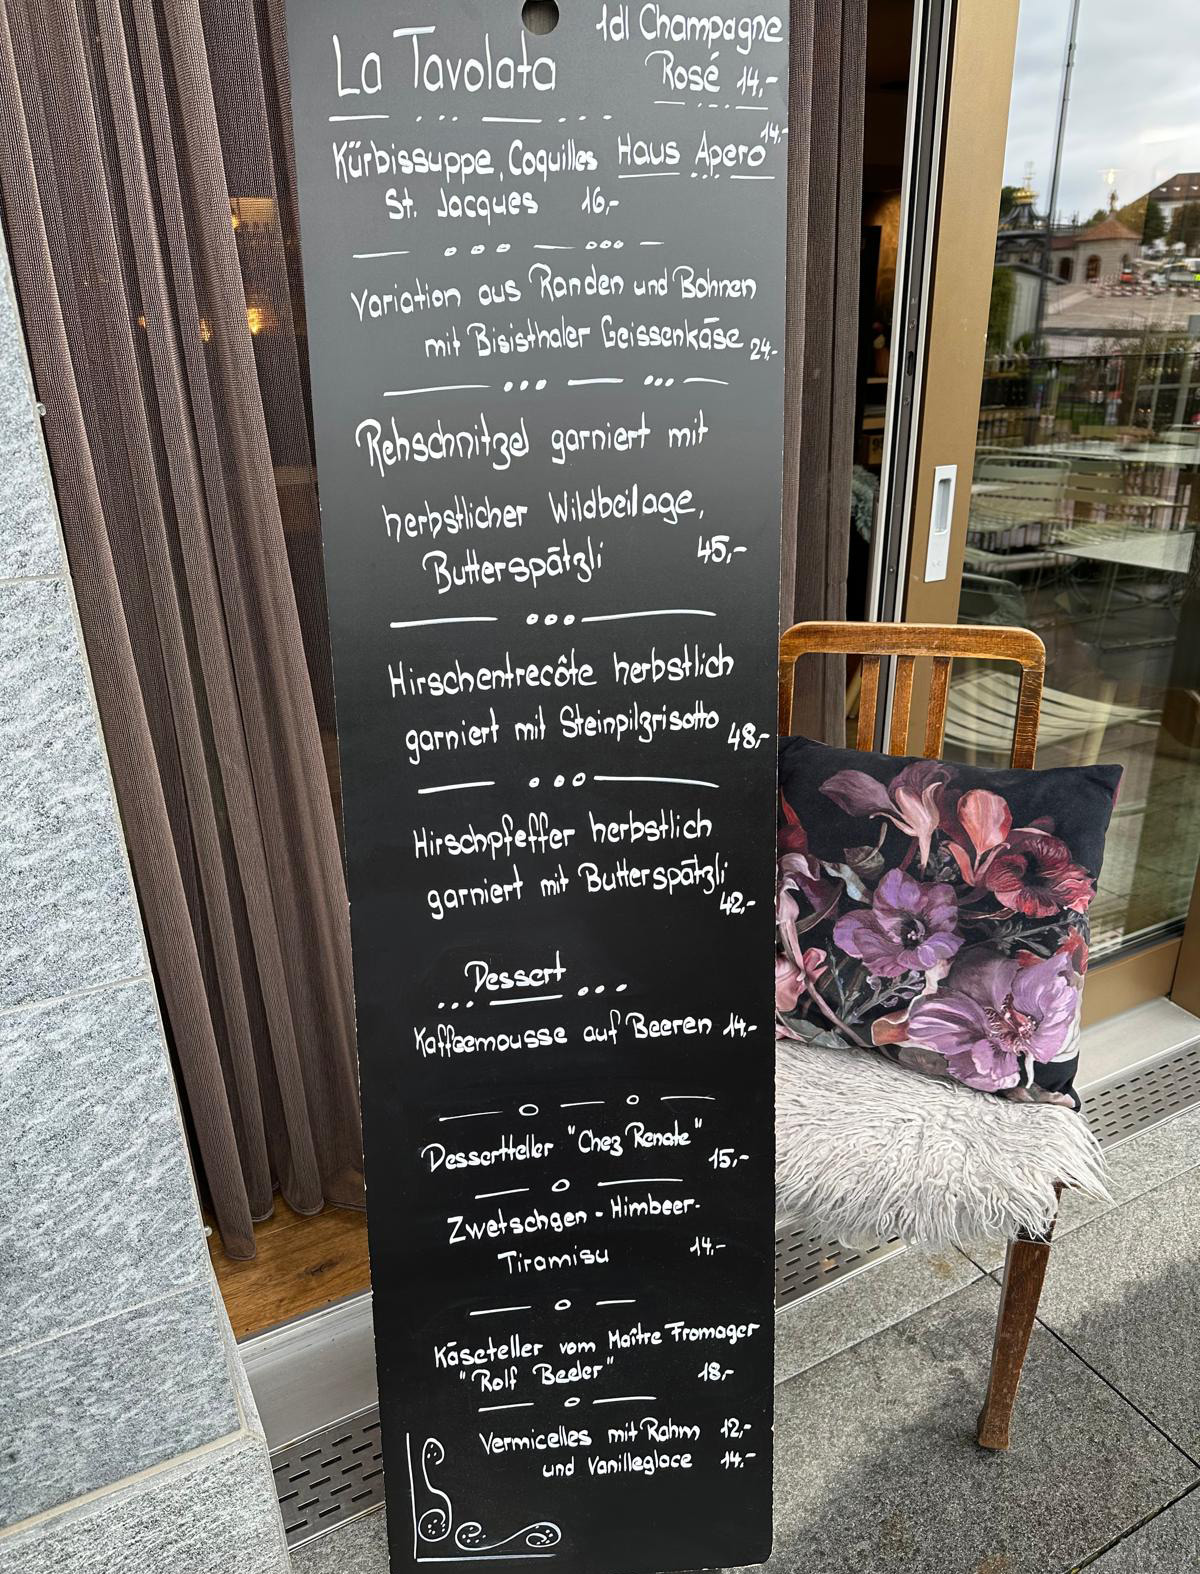 La Tavolata
1dl Champagne
Rosé 14,-
Kürbissuppe, Coquilles
St. Jacques 16,-
Haus Apero 14,-
Variation aus Randen und Bohnen
mit Bisisthaler Geissenkäse 24,-
Rehschnitzel garniert mit
herbstlicher Wildbeilage,
Butterspätzli 45,-
Hirschentrecôte herbstlich
garniert mit Steinpilzrisotto 48,-
Hirschpfeffer herbstlich
garniert mit Butterspätzli
42,-
Dessert
Kaffeemousse auf Beeren 14,-
Dessertteller "Chez Renate"
15,-
Zwetschgen-Himbeer-
Tiramisu 14,-
Käseteller vom Maître Fromager
"Rolf Beeler" 18,-
Vermicelles mit Rahm 12,-
und Vanilleglace 14,-